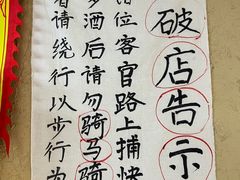 破店告示
位客官路上捕快
多酒后请勿骑马骑
请绕行以步行为